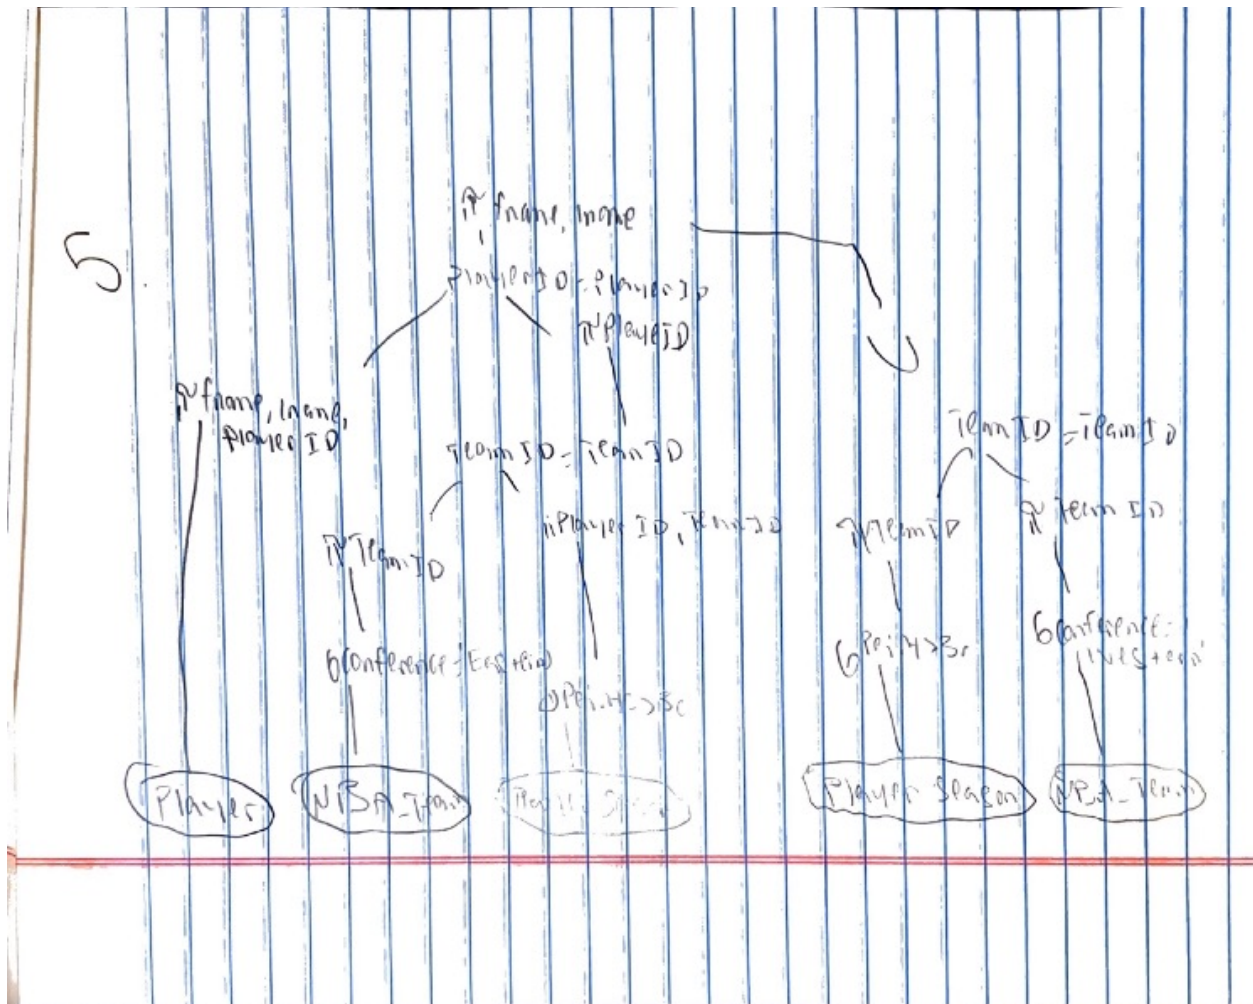 5.
π fname, lname
PlayerID = PlayerID
π PlayeID
π fname, lname,
PlayerID
TeamID = TeamID
TeamID = TeamID
π TeamID
π PlayerID, TeamID
π TeamID
π TeamID
σ Conference = 'Eastern'
σ Conference =
'Western'
Player
NBA_Team
Player Season
NBA_Team